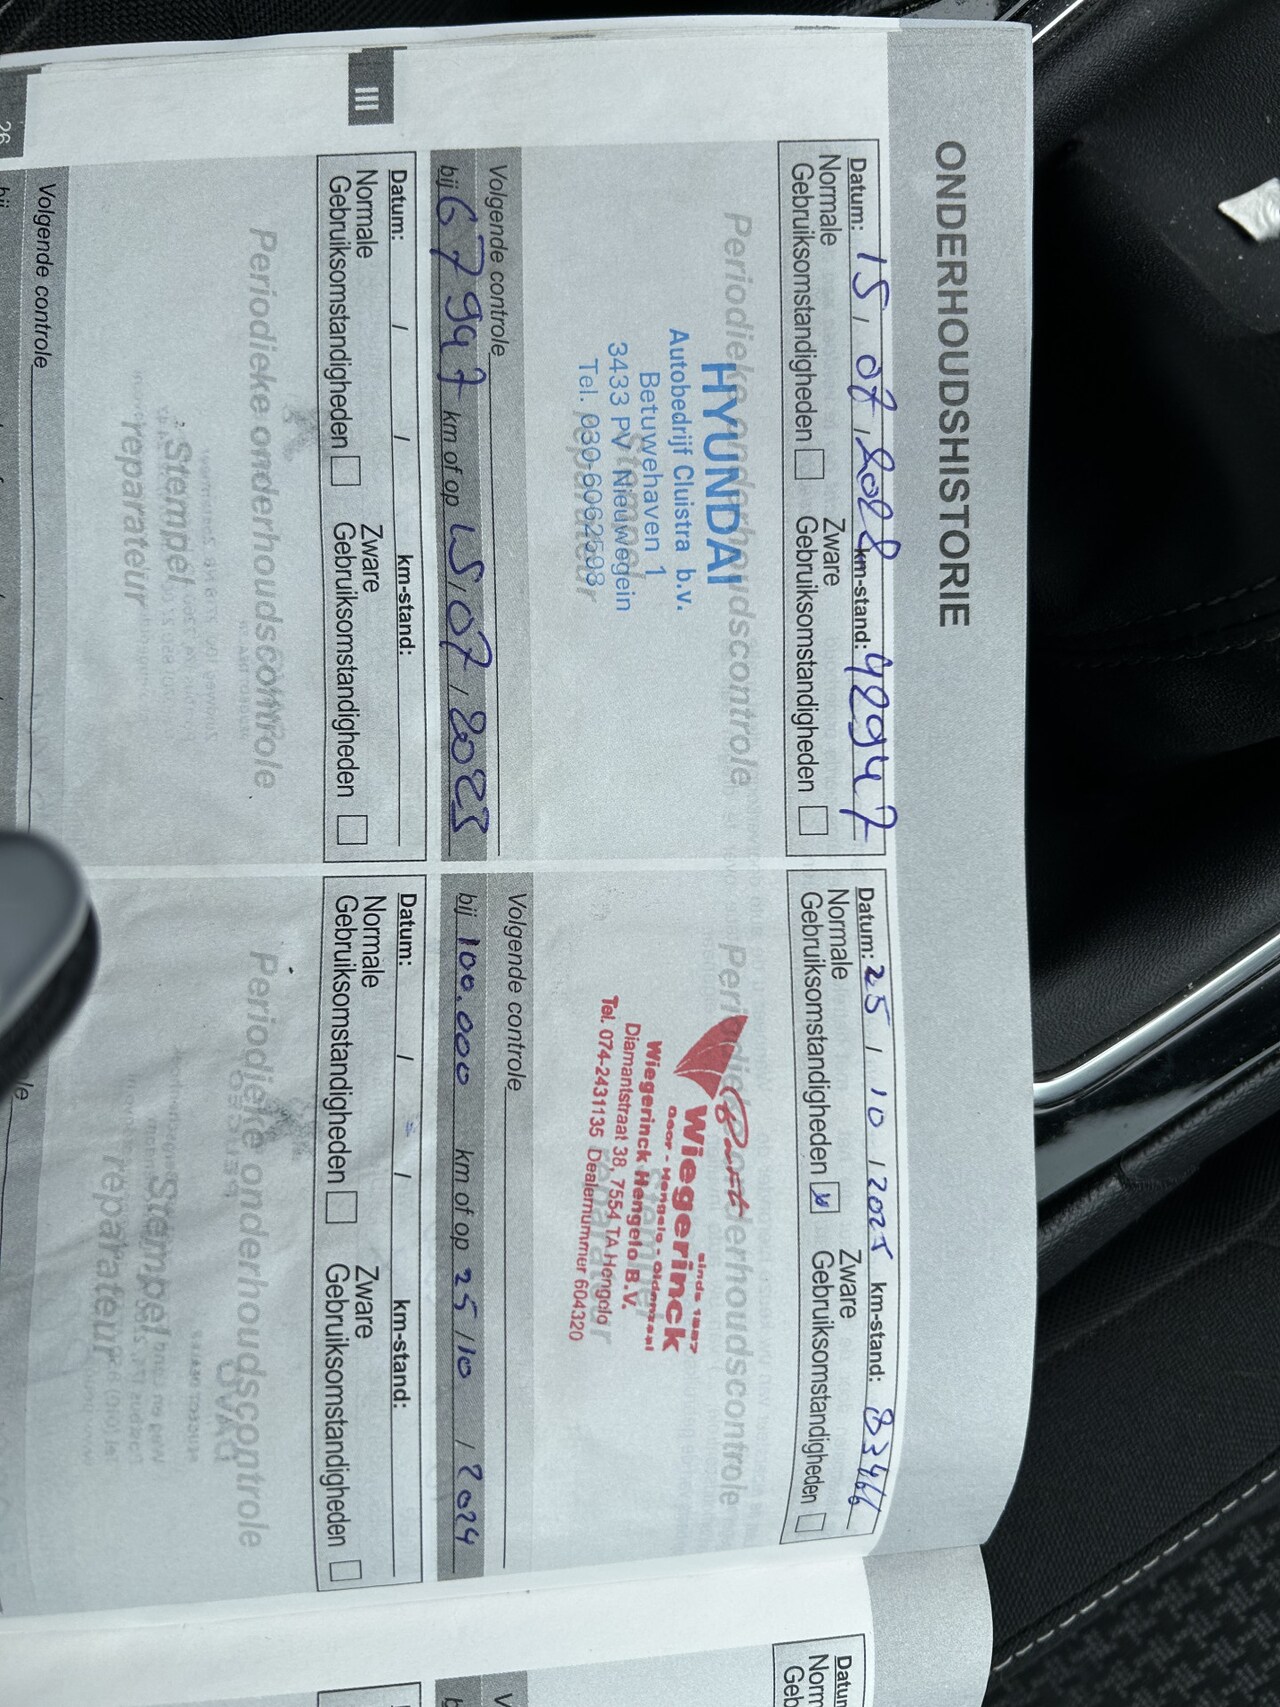 ONDERHOUDSHISTORIE
Datum: 15 / 07 / 2022 km-stand: 48947
Normale Gebruiksomstandigheden
Zware Gebruiksomstandigheden
Periodieke onderhoudscontrole
Stempel reparateur
HYUNDAI
Autobedrijf Cluistra b.v.
Betuwehaven 1
3433 PV Nieuwegein
Tel. 030-6062593
Volgende controle
bij 67947 km of op 15 / 07 / 2023
Datum: 25 / 10 / 2023 km-stand: 83466
Normale Gebruiksomstandigheden
Zware Gebruiksomstandigheden
Periodieke onderhoudscontrole
Stempel reparateur
sinds 1887
Wiegerinck
Goor - Hengelo - Oldenzaal
Wiegerinck Hengelo B.V.
Diamantstraat 38, 7554 TA Hengelo
Tel. 074-2431135 Dealernummer 604320
Volgende controle
bij 100.000 km of op 25 / 10 / 2024
III
Datum: / / km-stand:
Normale Gebruiksomstandigheden
Zware Gebruiksomstandigheden
Periodieke onderhoudscontrole
Stempel reparateur
Volgende controle
Datum: / / km-stand:
Normale Gebruiksomstandigheden
Zware Gebruiksomstandigheden
Periodieke onderhoudscontrole
Stempel reparateur
26
bij